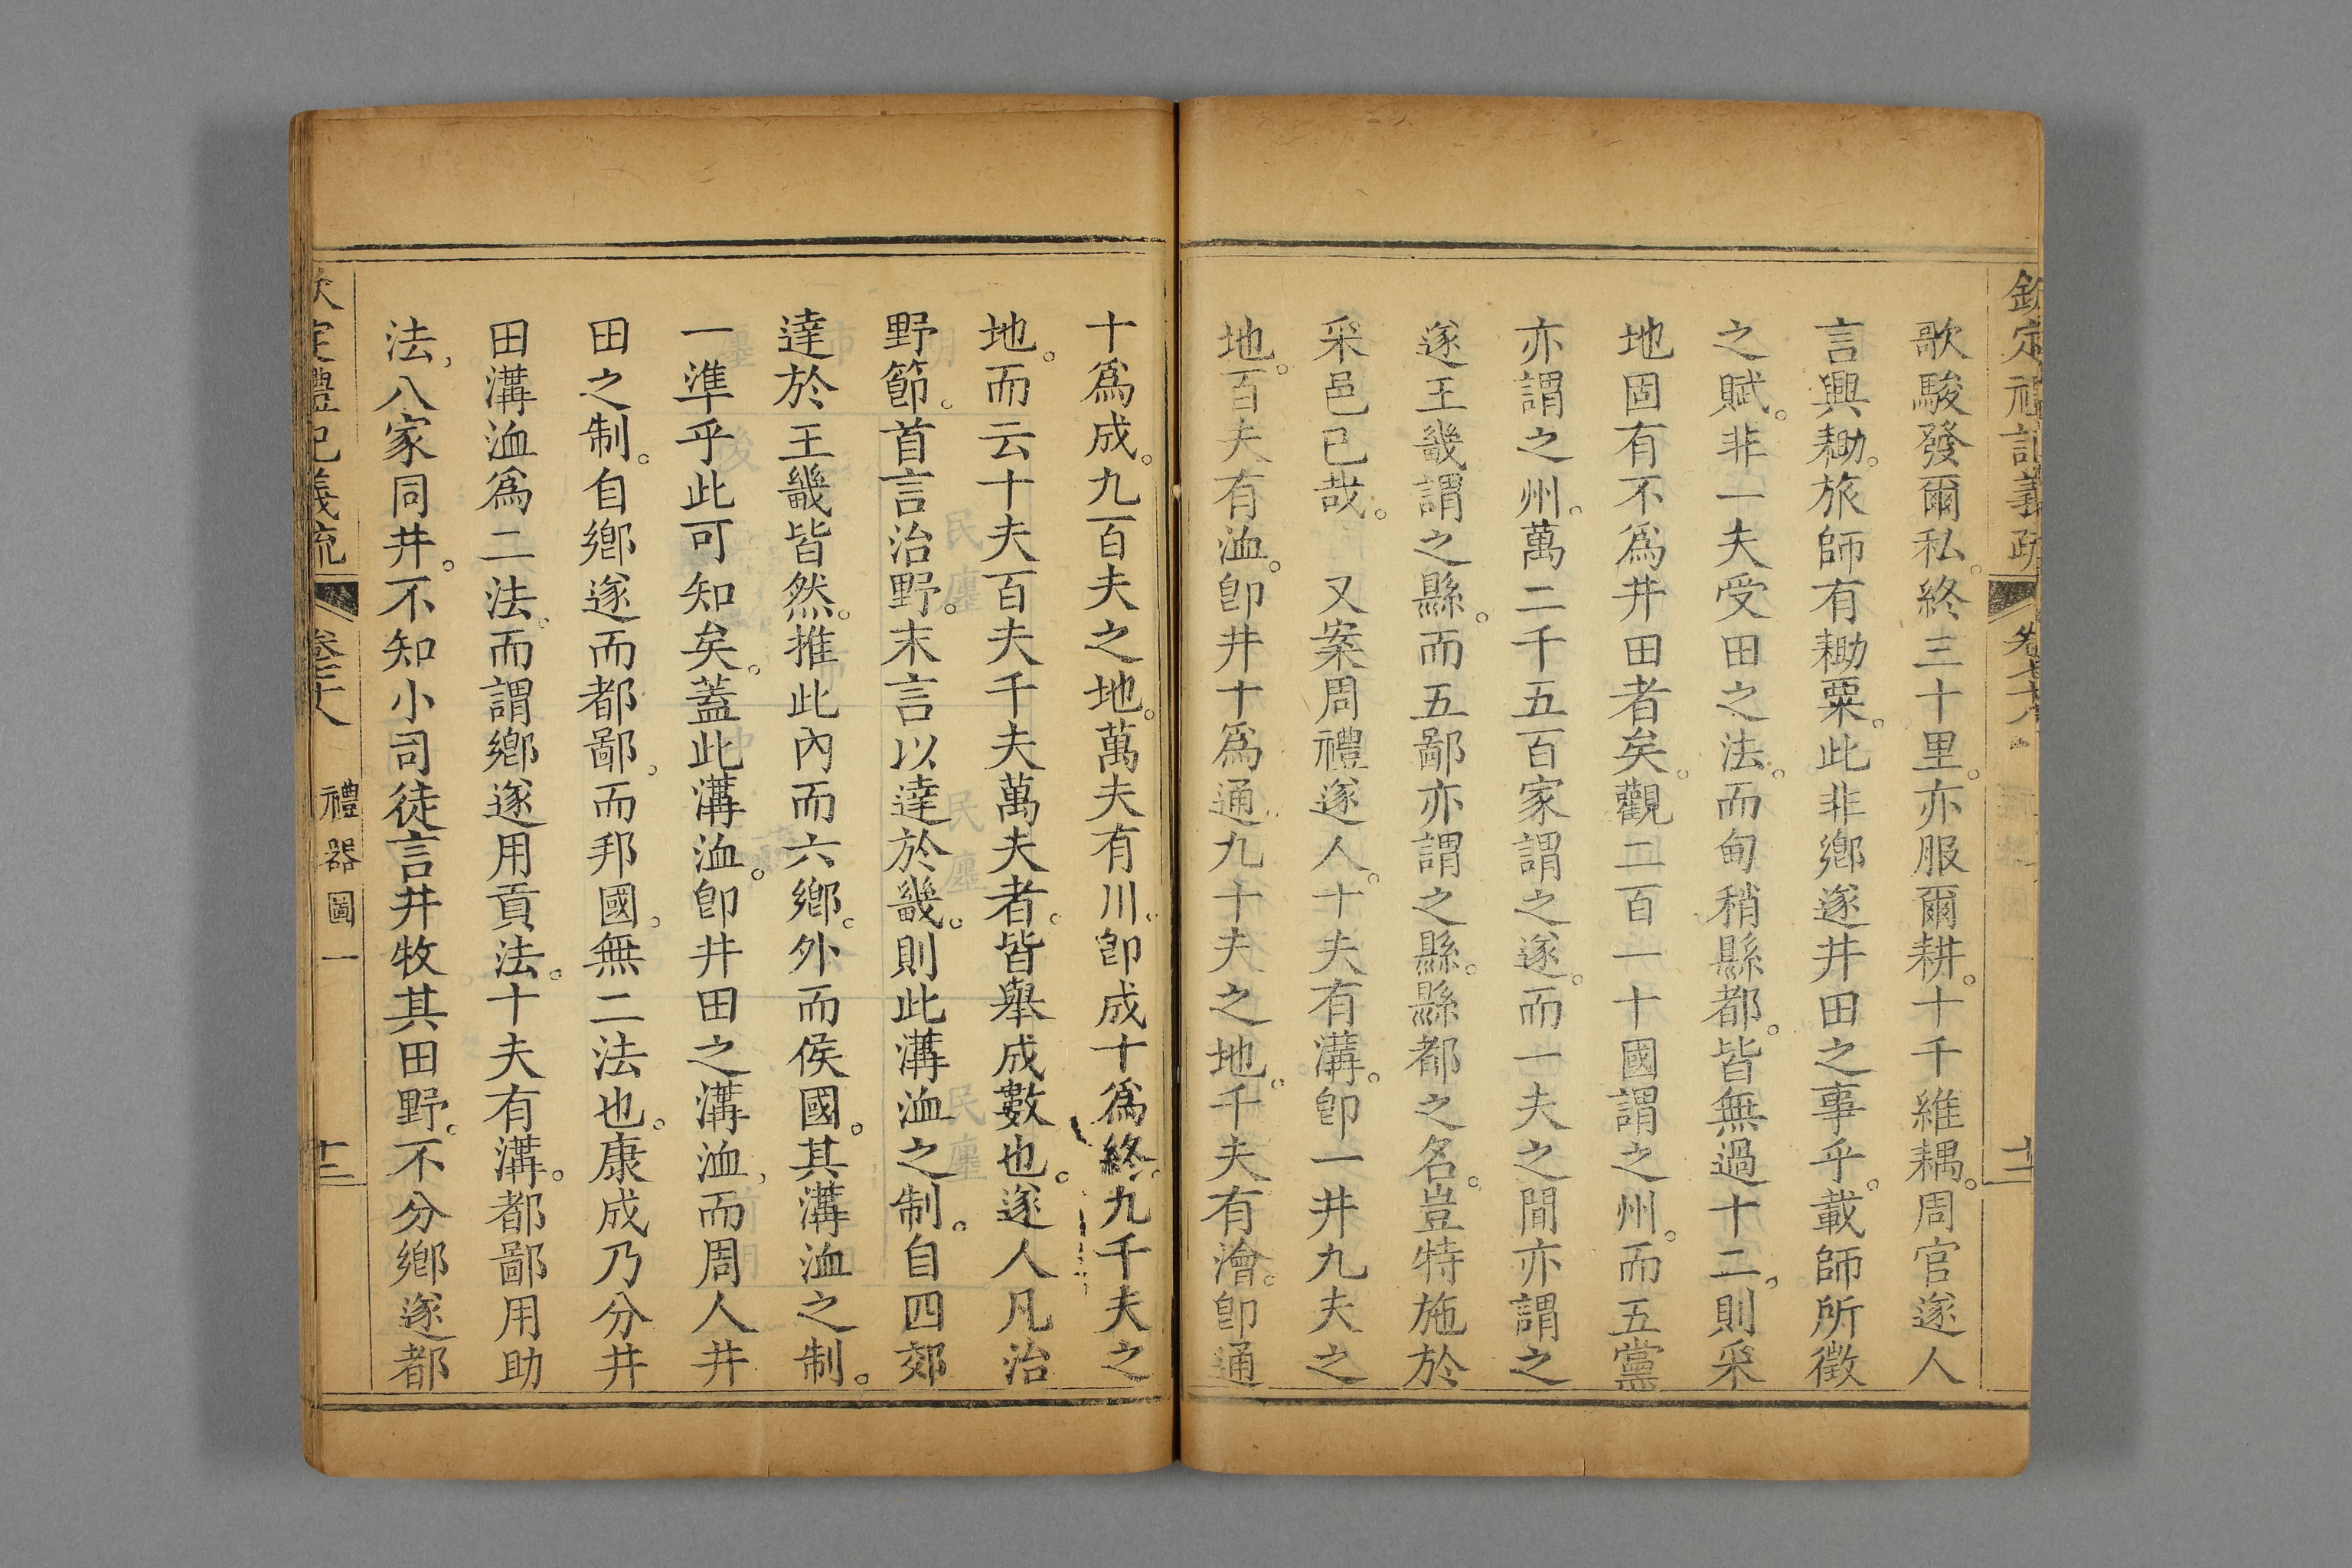 欽定禮記義疏 卷七十八 十二
歌駿發爾私。終三十里。亦服爾耕。十千維耦。周官遂人
言興耡。旅師有耡粟。此非鄉遂井田之事乎。載師所徵
之賦。非一夫受田之法。而甸稍縣都。皆無過十二。則采
地固有不爲井田者矣。觀二百一十國謂之州。而五黨
亦謂之州。萬二千五百家謂之遂。而一夫之間亦謂之
遂王畿謂之縣。而五鄙亦謂之縣。縣都之名。豈特施於
采邑已哉。 又案周禮遂人。十夫有溝。卽一井九夫之
地。百夫有洫。卽井十爲通九十夫之地。千夫有澮。卽通
十爲成。九百夫之地。萬夫有川。卽成十爲終。九千夫之
地。而云十夫百夫千夫萬夫者。皆舉成數也。遂人凡治
野節。首言治野。末言以達於畿。則此溝洫之制。自四郊
達於王畿皆然。推此內而六鄉。外而侯國。其溝洫之制。
一準乎此可知矣。蓋此溝洫。卽井田之溝洫。而周人井
田之制。自鄉遂而都鄙。而邦國。無二法也。康成乃分井
田溝洫爲二法。而謂鄉遂用貢法。十夫有溝。都鄙用助
法。八家同井。不知小司徒言井牧其田野。不分鄉遂都
定禮記義疏 禮器圖一 十二